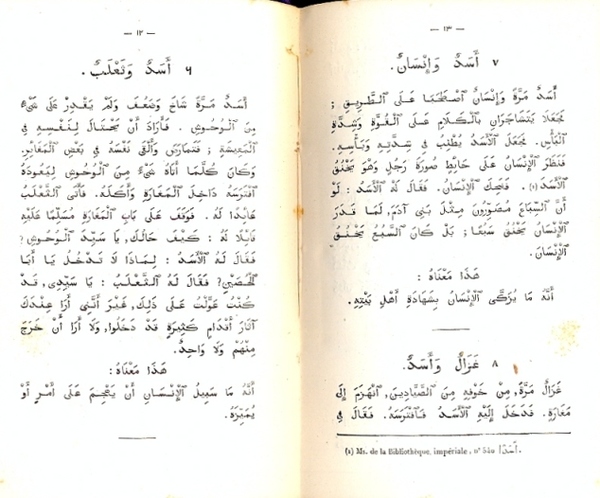 — ١٢ —
٦ أَسَدٌ وَثَعْلَبٌ.
أَسَدٌ مَرَّةً شَاخَ وَضَعُفَ وَلَمْ يَقْدِرْ عَلَى شَيْءٍ
مِنَ ٱلْوُحُوشِ. فَأَرَادَ أَنْ يَحْتَالَ لِنَفْسِهِ فِي
ٱلْمَعِيشَةِ؛ فَتَمَارَضَ وَأَلْقَى نَفْسَهُ فِي بَعْضِ ٱلْمَغَايِرِ.
وَكَانَ كُلَّمَا أَتَاهُ شَيْءٌ مِنَ ٱلْوُحُوشِ لِيَعُودَهُ
ٱفْتَرَسَهُ دَاخِلَ ٱلْمَغَارَةِ وَأَكَلَهُ. فَأَتَى ٱلثَّعْلَبُ
عَايِدًا لَهُ. فَوَقَفَ عَلَى بَابِ ٱلْمَغَارَةِ مُسَلِّمًا عَلَيْهِ
قَايِلًا لَهُ: كَيْفَ حَالُكَ، يَا سَيِّدَ ٱلْوُحُوشِ؟
فَقَالَ لَهُ ٱلْأَسَدُ: لِمَاذَا لَا تَدْخُلُ يَا أَبَا
ٱلْحُصَيْنِ؟ فَقَالَ لَهُ ٱلثَّعْلَبُ: يَا سَيِّدِي، قَدْ
كُنْتُ عَوَّلْتُ عَلَى ذٰلِكَ، غَيْرَ أَنَّنِي أَرَا عِنْدَكَ
آثَارَ أَقْدَامٍ كَثِيرَةٍ قَدْ دَخَلُوا، وَلَا أَرَا أَنْ خَرَجَ
مِنْهُمْ وَلَا وَاحِدٌ.
هٰذَا مَعْنَاهُ:
أَنَّهُ مَا سَبِيلُ ٱلْإِنْسَانِ أَنْ يَهْجِمَ عَلَى أَمْرٍ أَوْ
يُمَيِّزَهُ.
— ١٣ —
٧ أَسَدٌ وَإِنْسَانٌ.
أَسَدٌ مَرَّةً وَإِنْسَانٌ ٱصْطَحَبَا عَلَى ٱلطَّرِيقِ؛
فَجَعَلَا يَتَشَاجَرَانِ بِٱلْكَلَامِ عَلَى ٱلْقُوَّةِ وَشِدَّةِ
ٱلْبَأْسِ. فَجَعَلَ ٱلْأَسَدُ يُطْنِبُ فِي شِدَّتِهِ وَبَأْسِهِ.
فَنَظَرَ ٱلْإِنْسَانُ عَلَى حَايِطٍ صُورَةَ رَجُلٍ وَهُوَ يَخْنُقُ
ٱلْأَسَدَ (١). فَضَحِكَ ٱلْإِنْسَانُ. فَقَالَ لَهُ ٱلْأَسَدُ: لَوْ
أَنَّ ٱلسِّبَاعَ مُصَوِّرُونَ مِثْلَ بَنِي آدَمَ، لَمَا قَدَرَ
ٱلْإِنْسَانُ يَخْنُقُ سَبُعًا؛ بَلْ كَانَ ٱلسَّبُعُ يَخْنُقُ
ٱلْإِنْسَانَ.
هٰذَا مَعْنَاهُ:
أَنَّهُ مَا يُزَكَّى ٱلْإِنْسَانُ بِشَهَادَةِ أَهْلِ بَيْتِهِ.
٨ غَزَالٌ وَأَسَدٌ.
غَزَالٌ مَرَّةً، مِنْ خَوْفِهِ مِنَ ٱلصَّيَّادِينَ، ٱنْهَزَمَ إِلَى
مَغَارَةٍ. فَدَخَلَ إِلَيْهِ ٱلْأَسَدُ فَٱفْتَرَسَهُ. فَقَالَ فِي
(1) Ms. de la Bibliothèque impériale, n° 540 أَسَدًا.